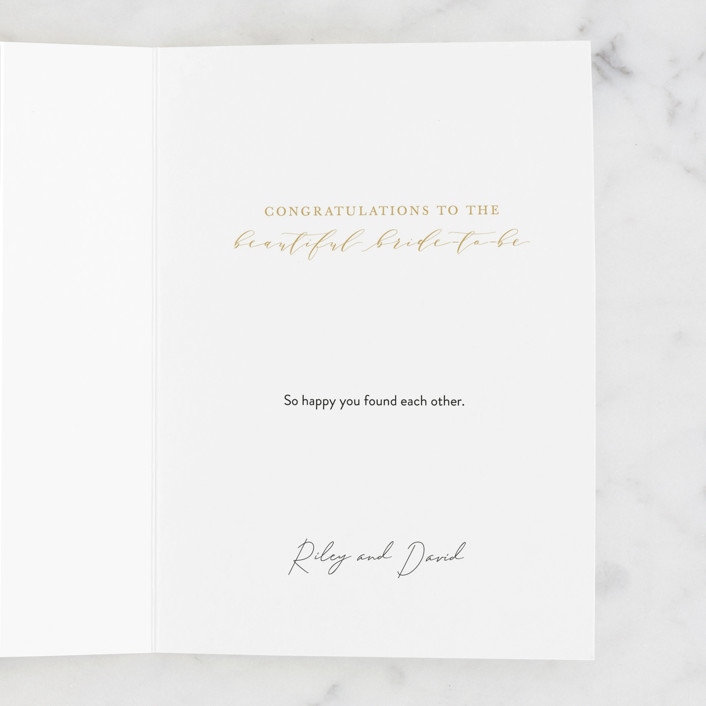 CONGRATULATIONS TO THE
beautiful bride-to-be
So happy you found each other.
Riley and David